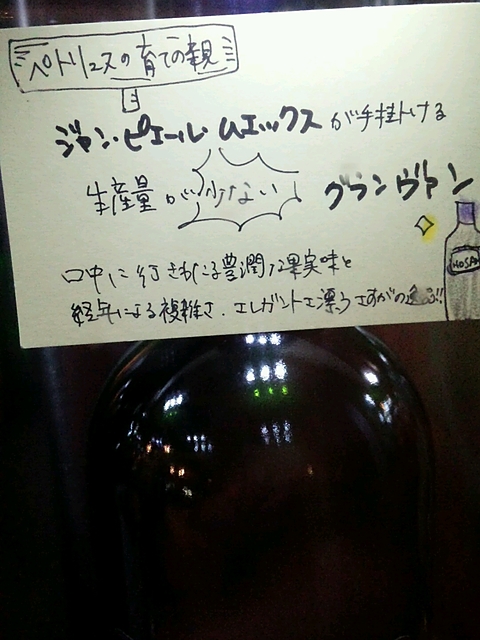 ペトリュスの育ての親
ジャン・ピエール ムエックスが手掛ける
生産量が少ない グランヴァン
HOSA
口中に行きわたる豊潤な果実味と
経年による複雑さ、エレガントさ漂うさすがの